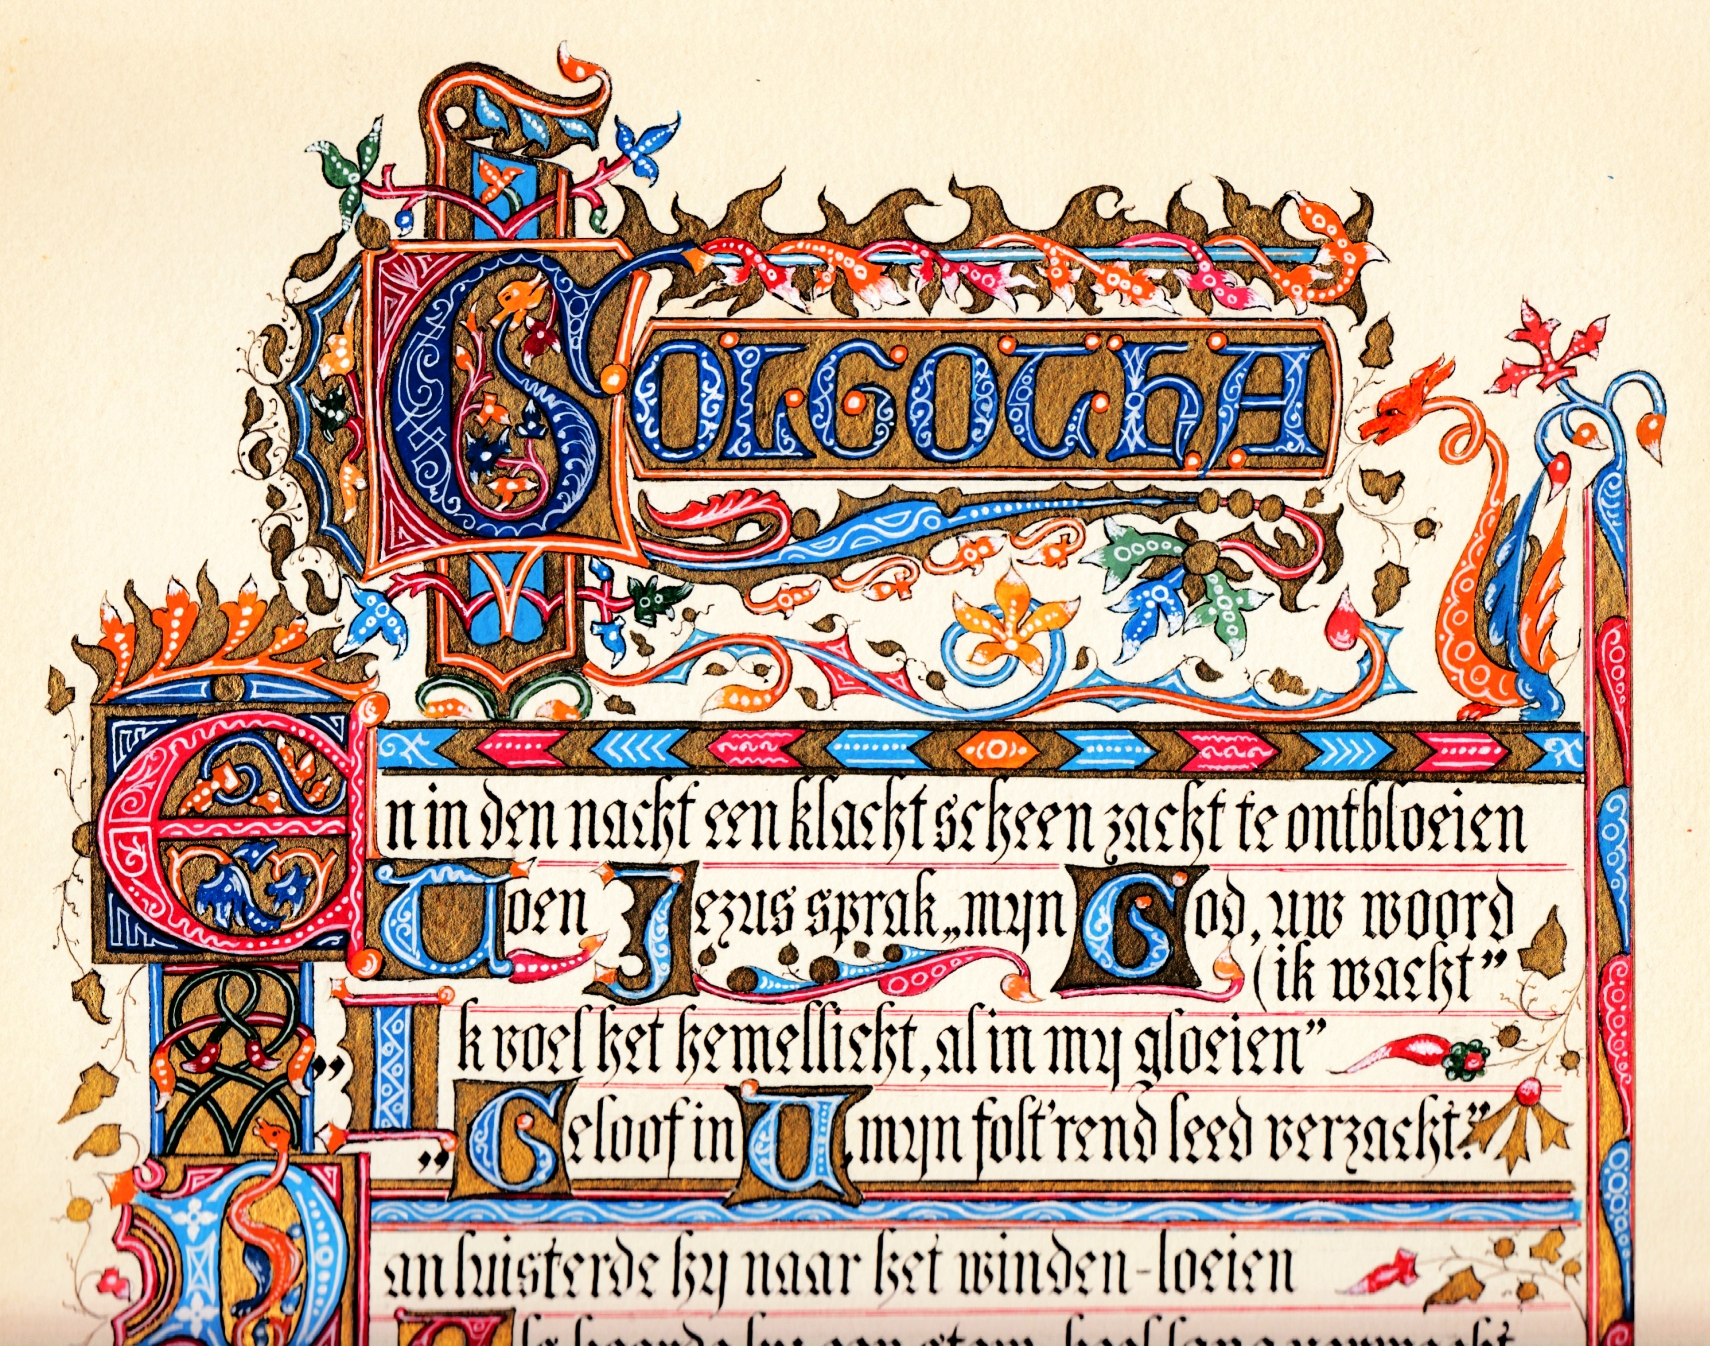 GOLGOTHA
En in den nacht een klacht scheen zacht te ontbloeien
Toen Jezus sprak „mijn God, uw woord
(ik wacht”
„Ik voel het hemellicht, al in mij gloeien”
„Geloof in U, mijn folt'rend leed verzacht.”
Dan luisterde hij naar het winden-loeien
Als hoorde hij een stem, heel lang verwacht